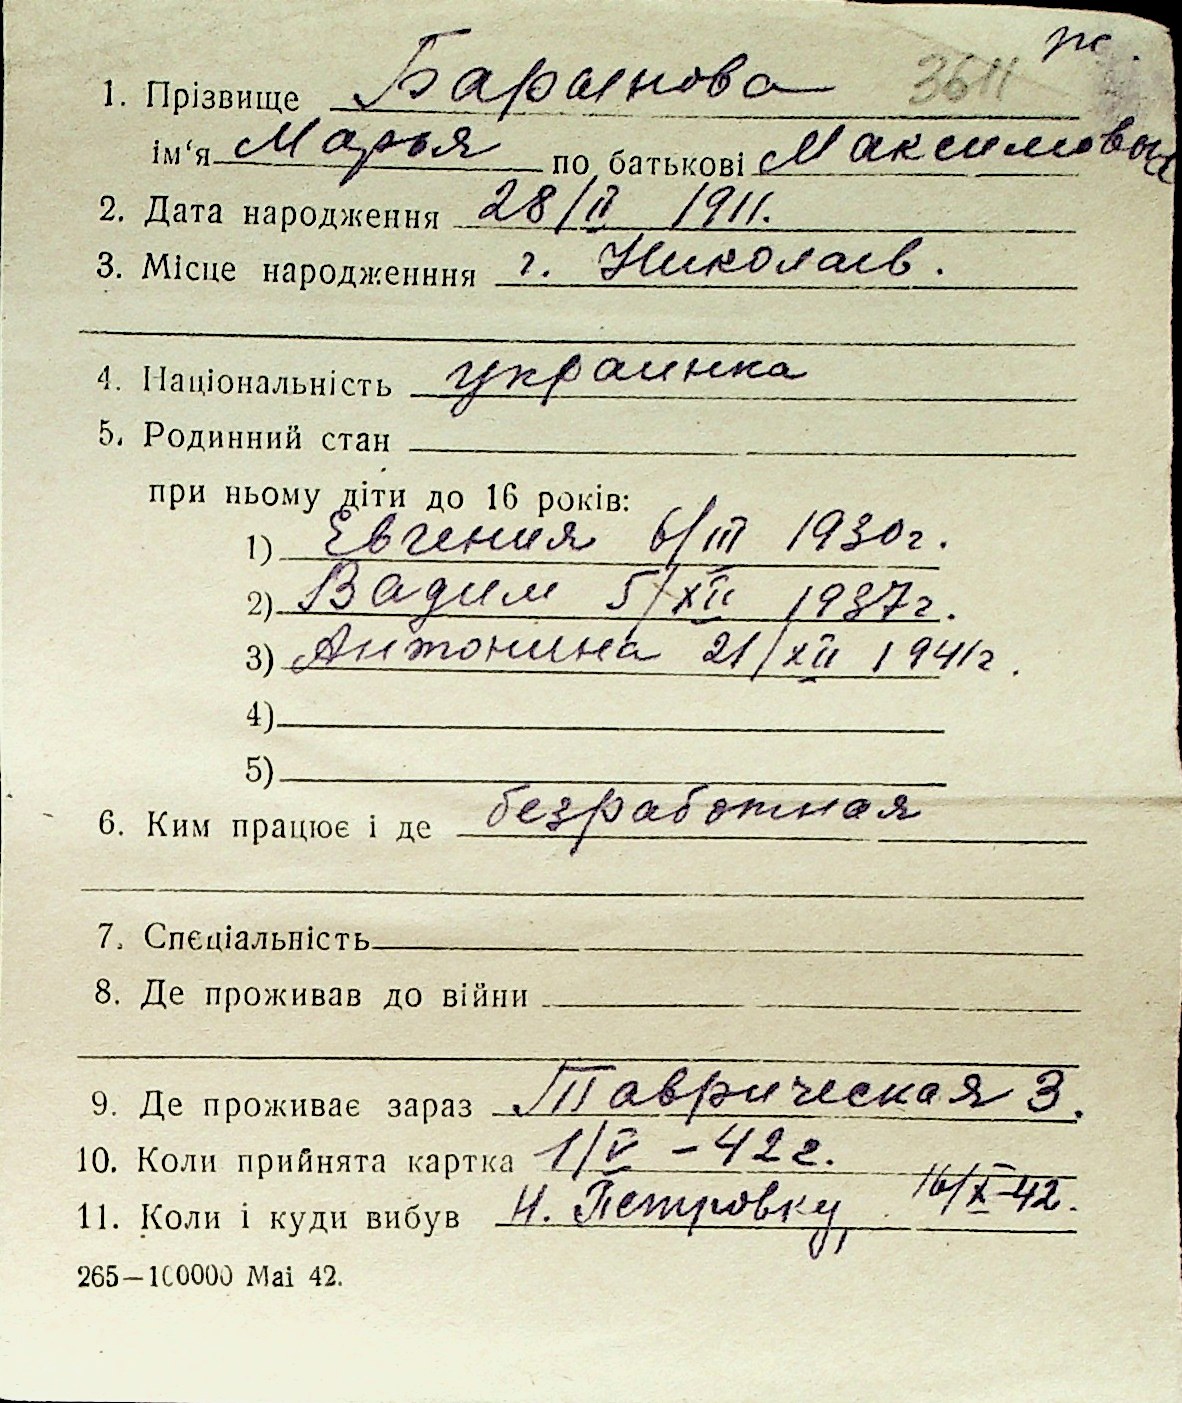 1. Прізвище Баранова 3611
ім‘я Марья по батькові Максимовна
2. Дата народження 28/II 1911.
3. Місце народженння г. Николаев.
4. Національність украинка
5. Родинний стан
при ньому діти до 16 років:
1) Евгения 6/III 1930г.
2) Вадим 5/XII 1937г.
3) Антонина 21/XII 1941г.
4)
5)
6. Ким працює і де безработная
7. Спєціальність
8. Де проживав до війни
9. Де проживає зараз Таврическая 3.
10. Коли прийнята картка 1/V – 42г.
11. Коли і куди вибув Н. Петровку, 16/X-42.
265—100000 Mai 42.